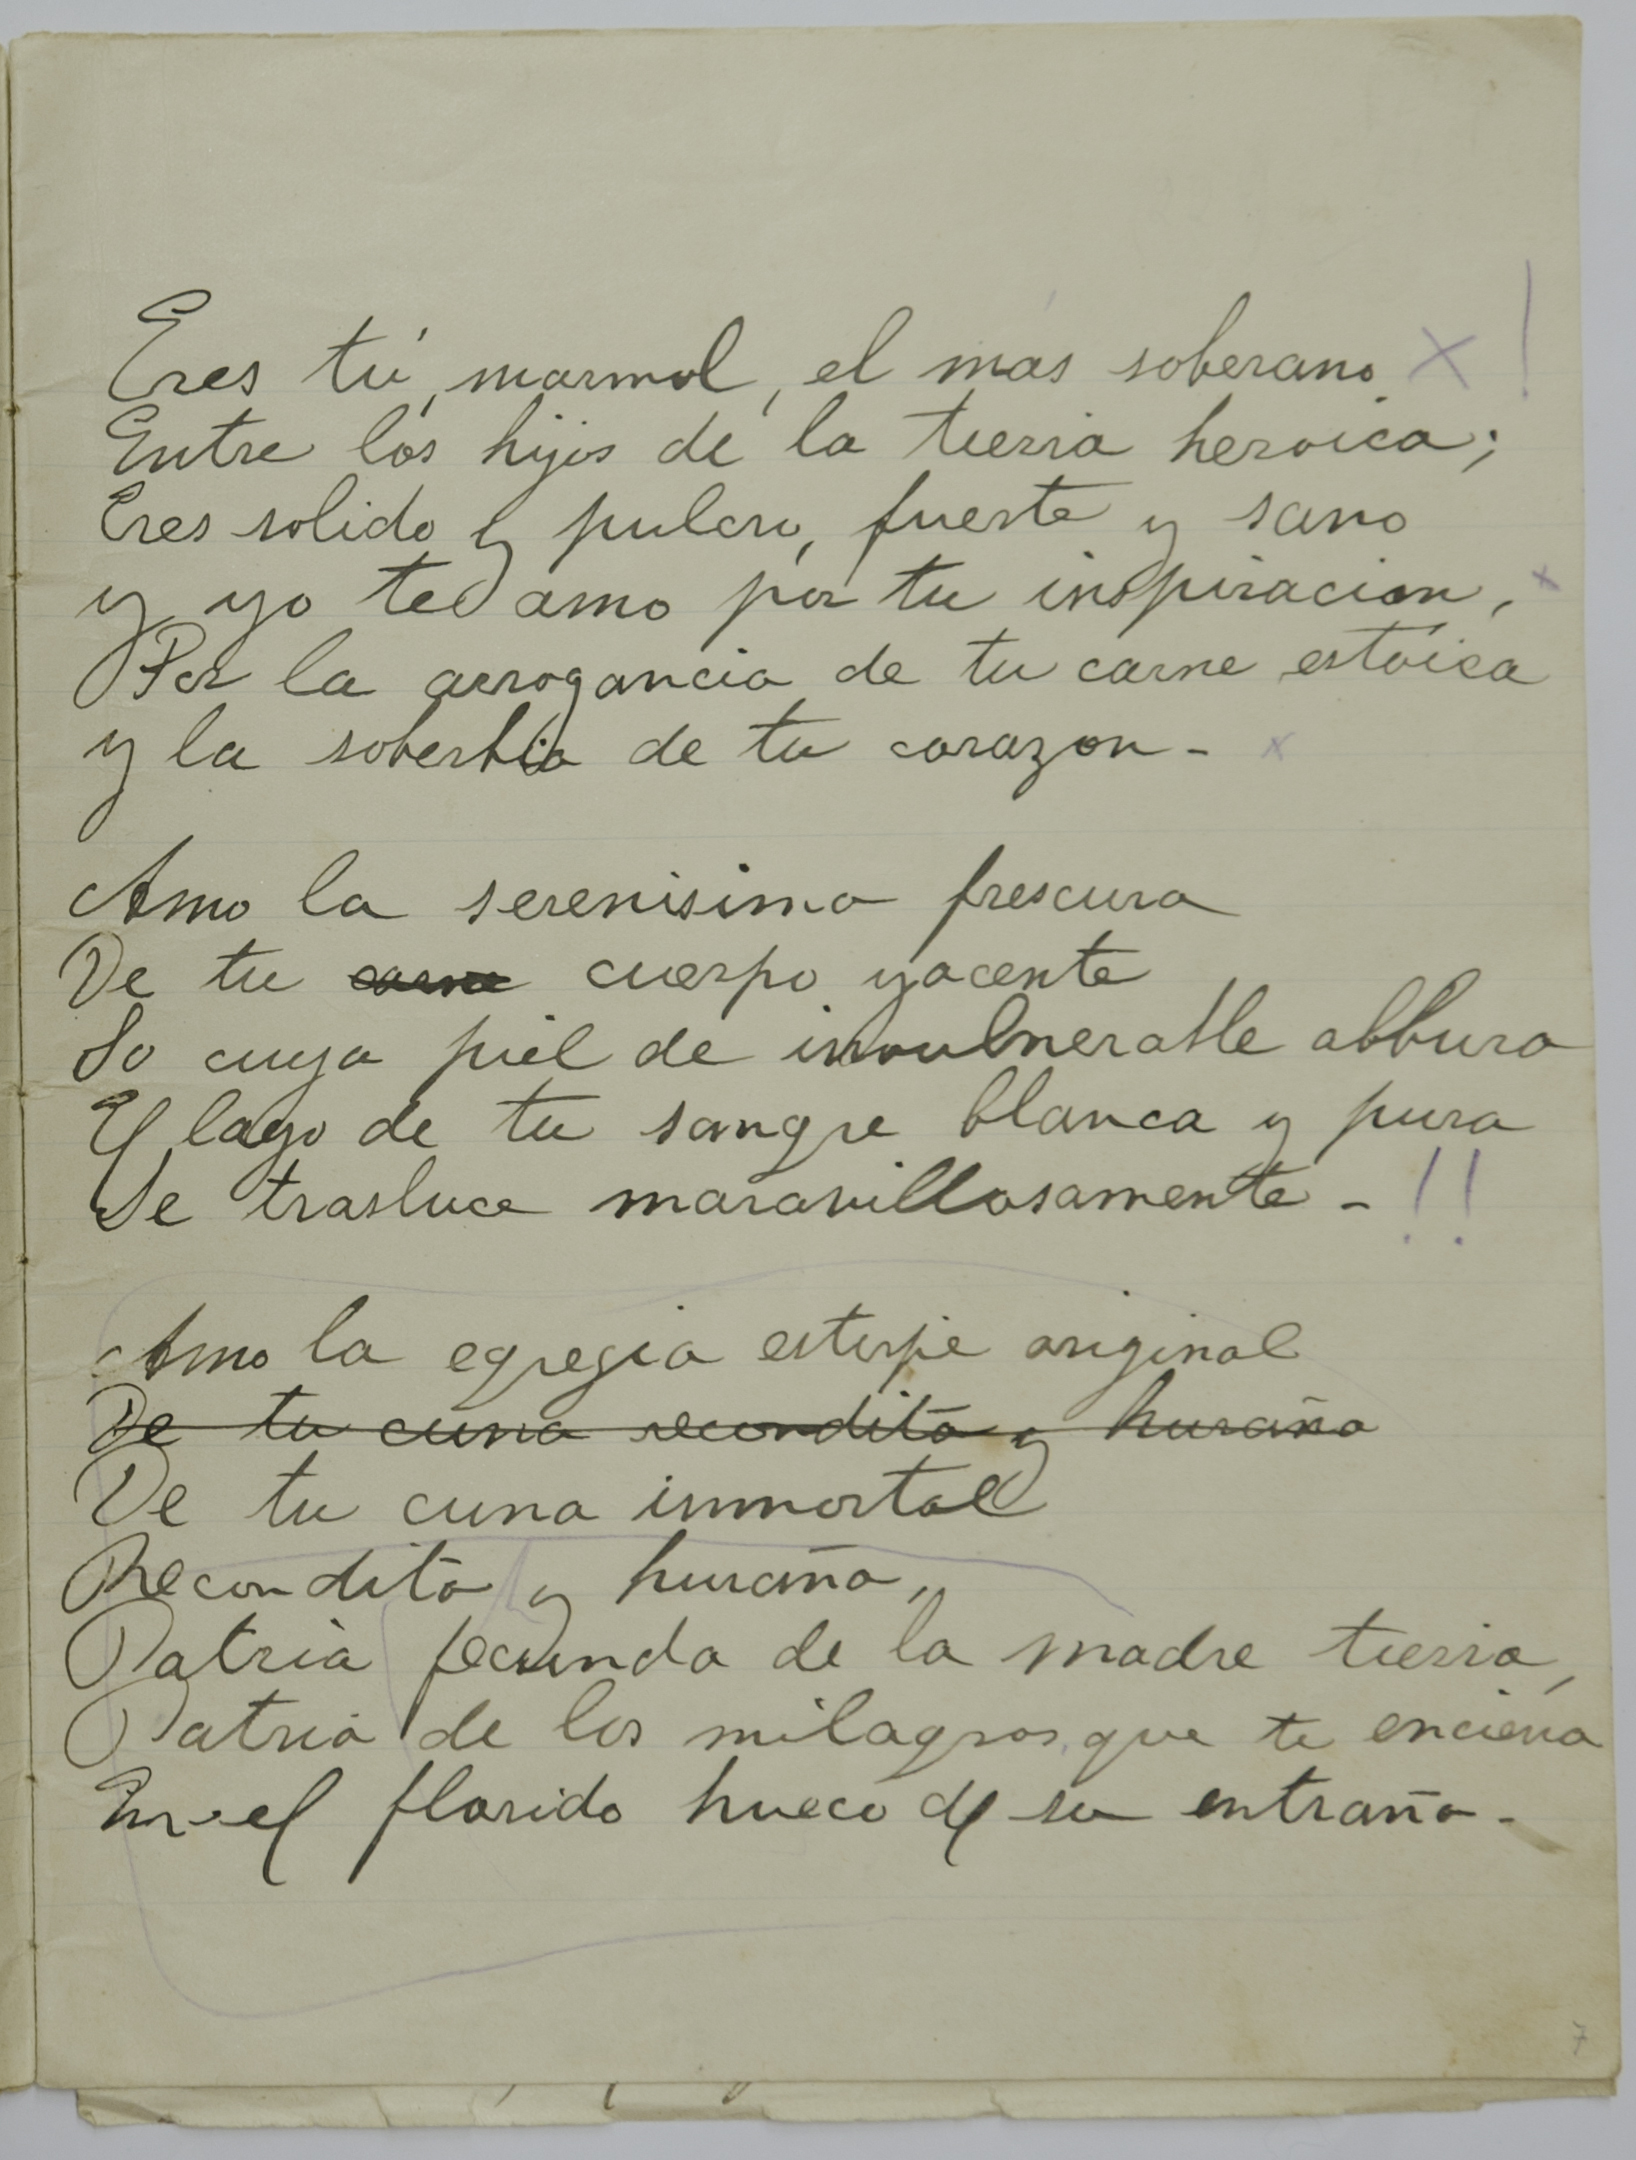 Eres tú, marmol, el mas soberano X !
Entre los hijos de la tierra heroica;
Eres solido y pulcro, fuerte y sano
y yo te amo por tu inspiracion, x
Por la arrogancia de tu carne estóica
y la soberbia de tu corazon - x
Amo la serenisima frescura
De tu carne cuerpo yacente
So cuya piel de invulnerable albura
El lago de tu sangre blanca y pura
Se trasluce maravillosamente - !!
Amo la egregia estirpe original
De tu cuna recondita y huraña
De tu cuna inmortal
Recondita y huraña,
Patria fecunda de la madre tierra,
Patria de los milagros, que te encierra
En el florido hueco de su entraña -
7